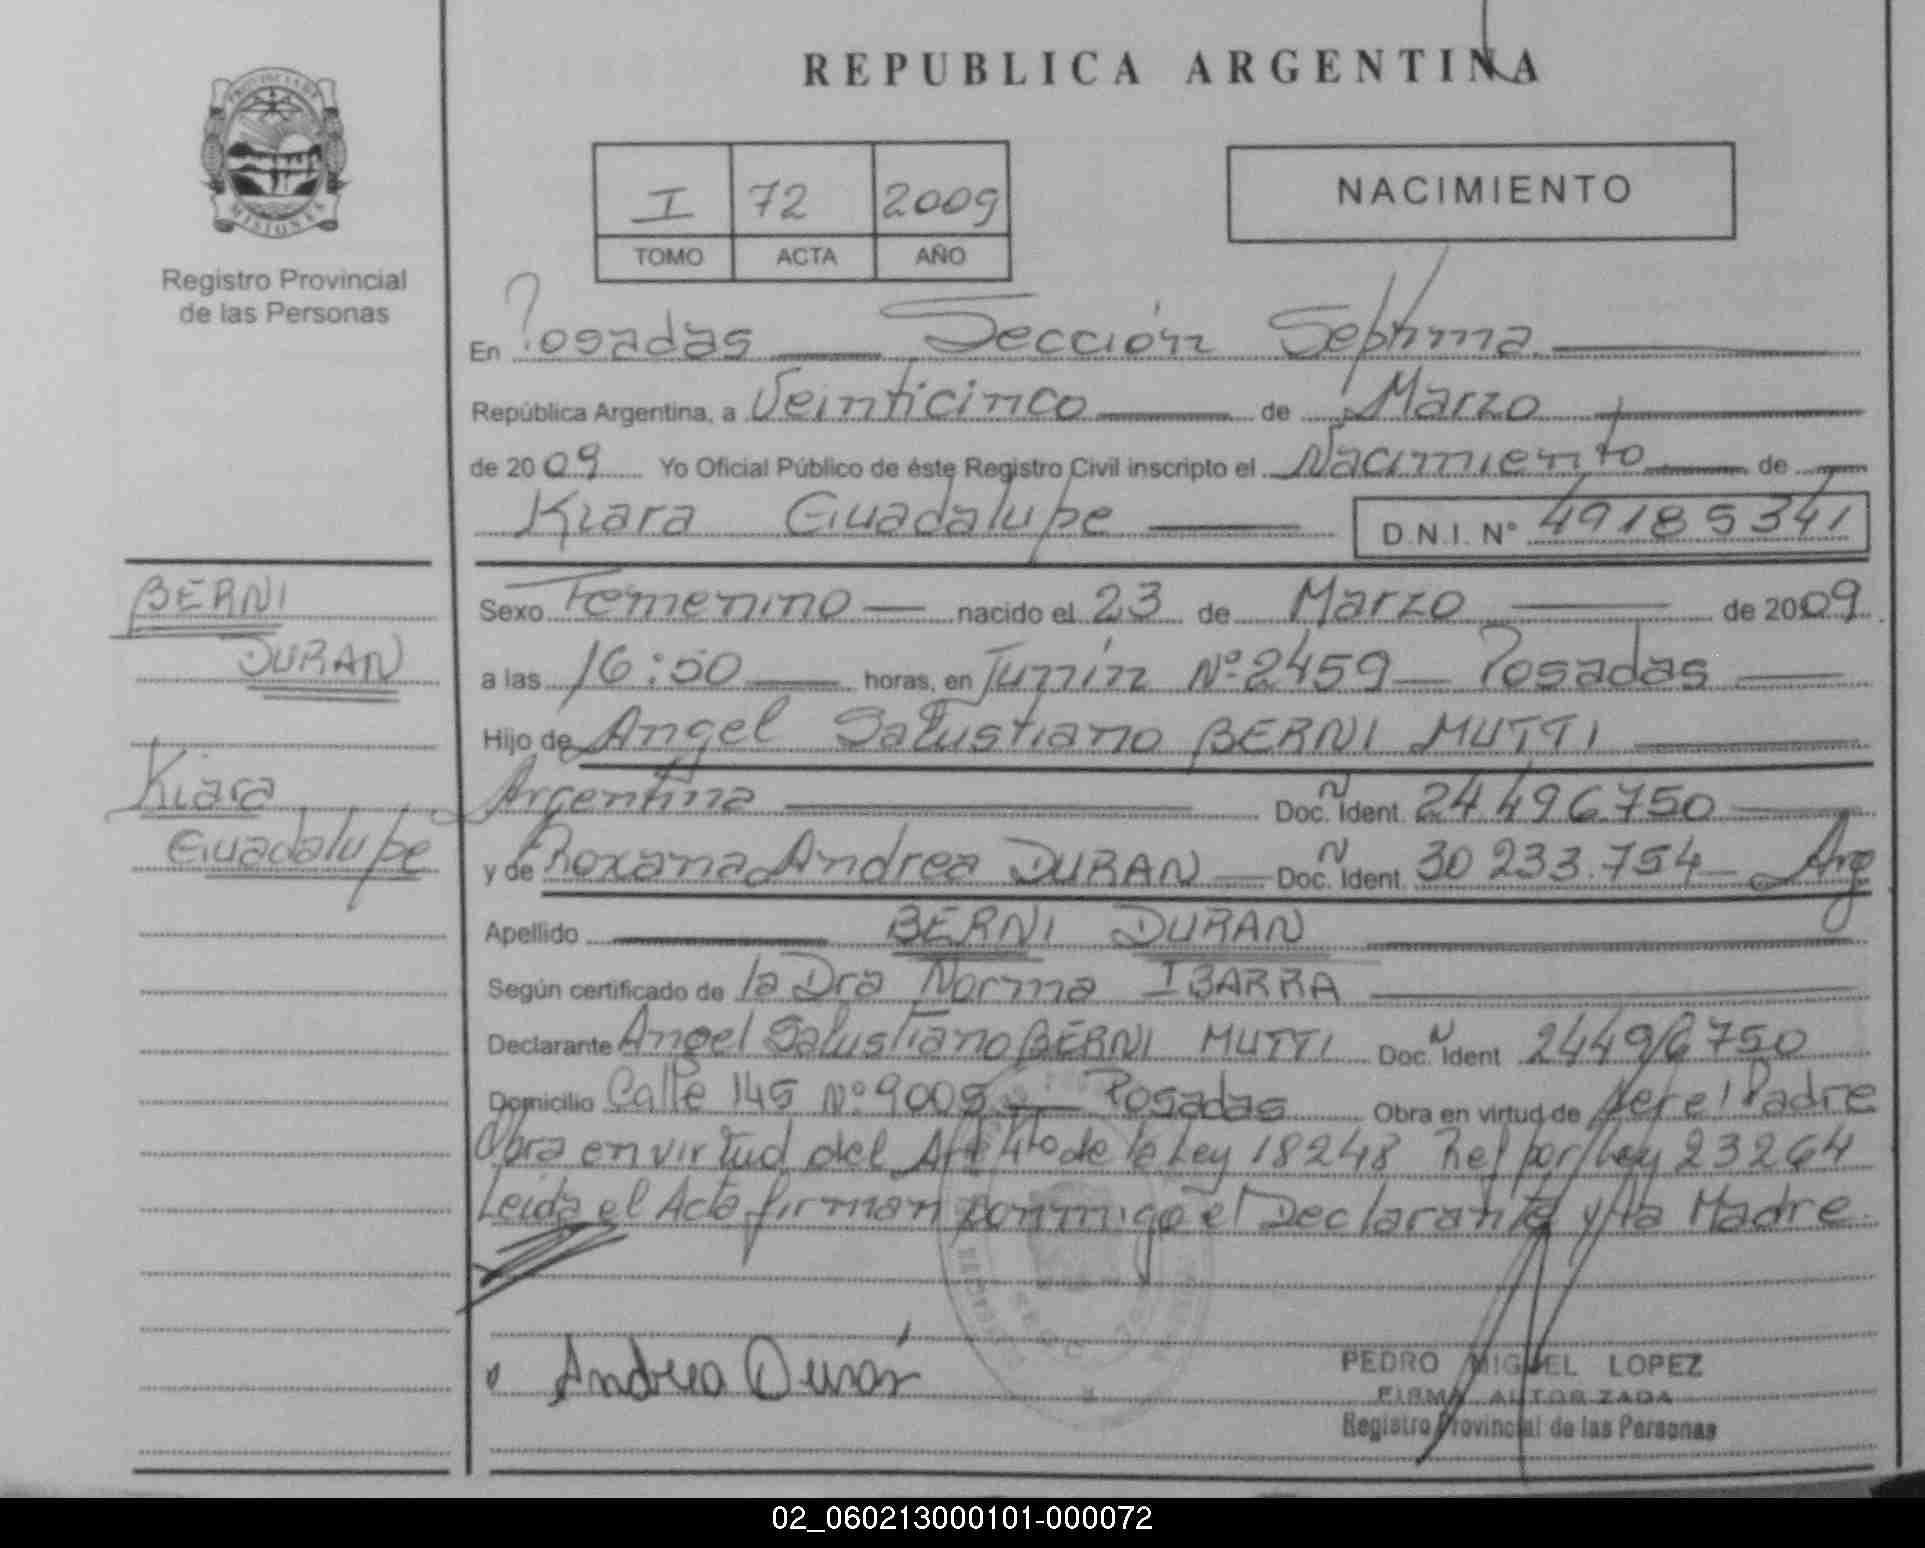 REPUBLICA ARGENTINA
PROVINCIA DE
MISIONES
Registro Provincial
de las Personas
I 72 2009
TOMO ACTA AÑO
NACIMIENTO
En Posadas Sección Septima
República Argentina, a Veinticinco de Marzo
de 2009 Yo Oficial Público de éste Registro Civil inscripto el Nacimiento de
Kiara Guadalupe D.N.I. N° 49185341
BERNI
DURAN
Kiara
Guadalupe
Sexo Femenino nacido el 23 de Marzo de 2009
a las 16:50 horas, en Junín Nº 2459 Posadas
Hijo de Angel Salustiano BERNI MUTTI
Argentina Doc. N Ident. 24.496.750
y de Roxana Andrea DURAN Doc. N Ident. 30 233.754 Arg
Apellido BERNI DURAN
Según certificado de la Dra Norma IBARRA
Declarante Angel Salustiano BERNI MUTTI Doc. N Ident 24496750
Domicilio Calle 145 Nº 9005 Posadas Obra en virtud de ser el Padre
Obra en virtud del Art 4to de la Ley 18248 Ref por Ley 23264
Leida el Acta firman conmigo el Declarante y la Madre.
Andrea Durán
PEDRO MIGUEL LOPEZ
FIRMA AUTORIZADA
Registro Provincial de las Personas
02_060213000101-000072